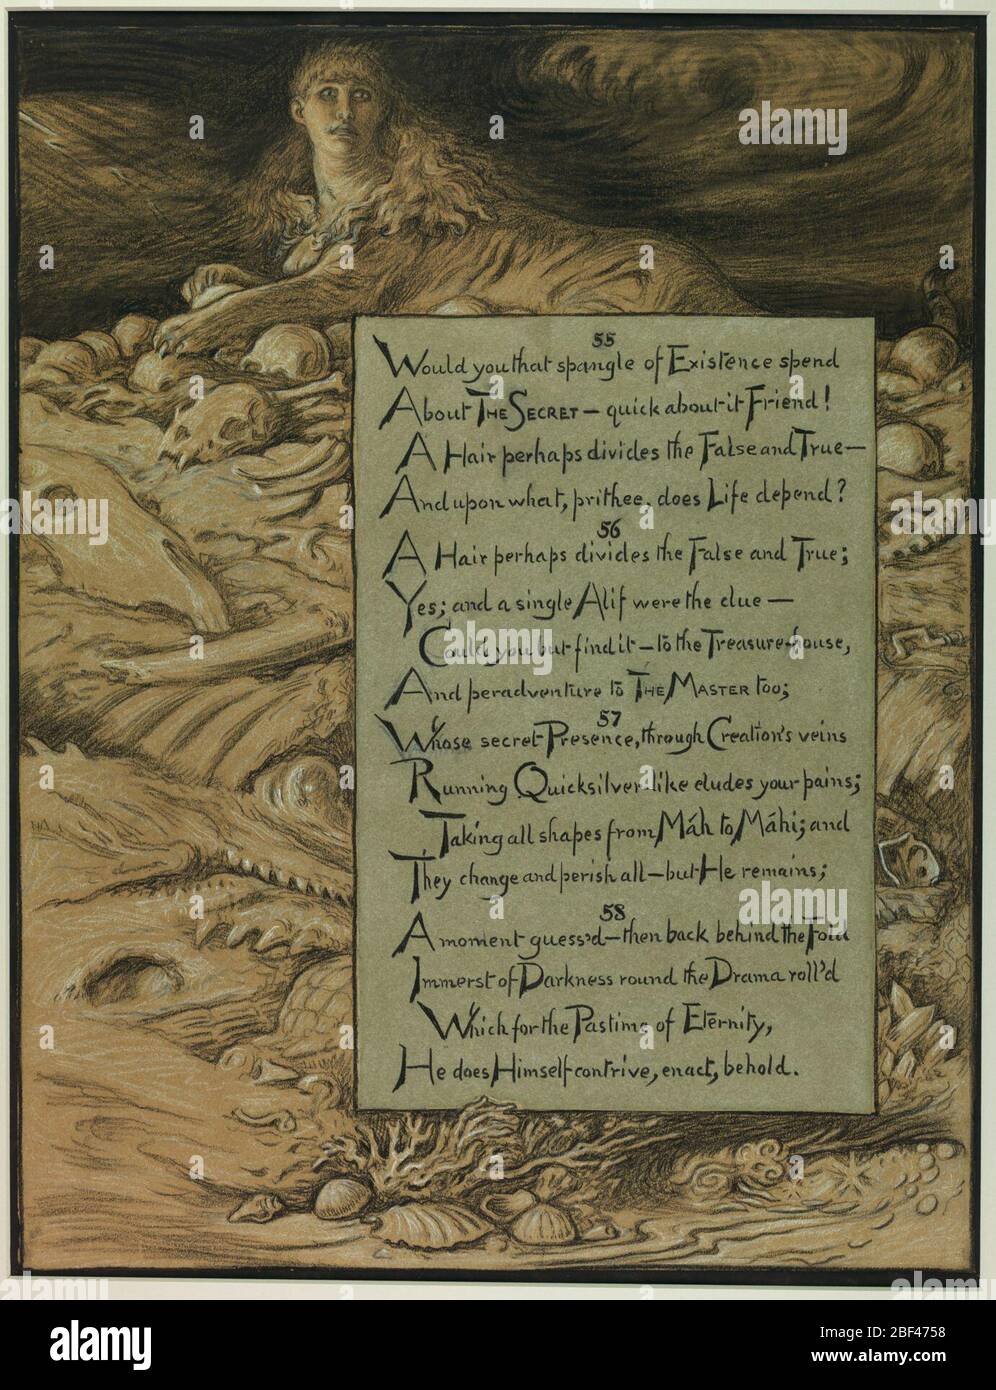 55
Would you that spangle of Existence spend
About THE SECRET — quick about it Friend!
A Hair perhaps divides the False and True—
And upon what, prithee, does Life depend?
56
A Hair perhaps divides the False and True;
Yes; and a single Alif were the clue —
Could you but find it — to the Treasure-house,
And peradventure to THE MASTER too;
57
Whose secret Presence, through Creation's veins
Running Quicksilver-like eludes your pains;
Taking all shapes from Máh to Máhi; and
They change and perish all — but He remains;
58
A moment guess'd — then back behind the Fold
Immerst of Darkness round the Drama roll'd
Which for the Pastime of Eternity,
He does Himself contrive, enact, behold.
alamy
Image ID: 2BF4758
www.alamy.com